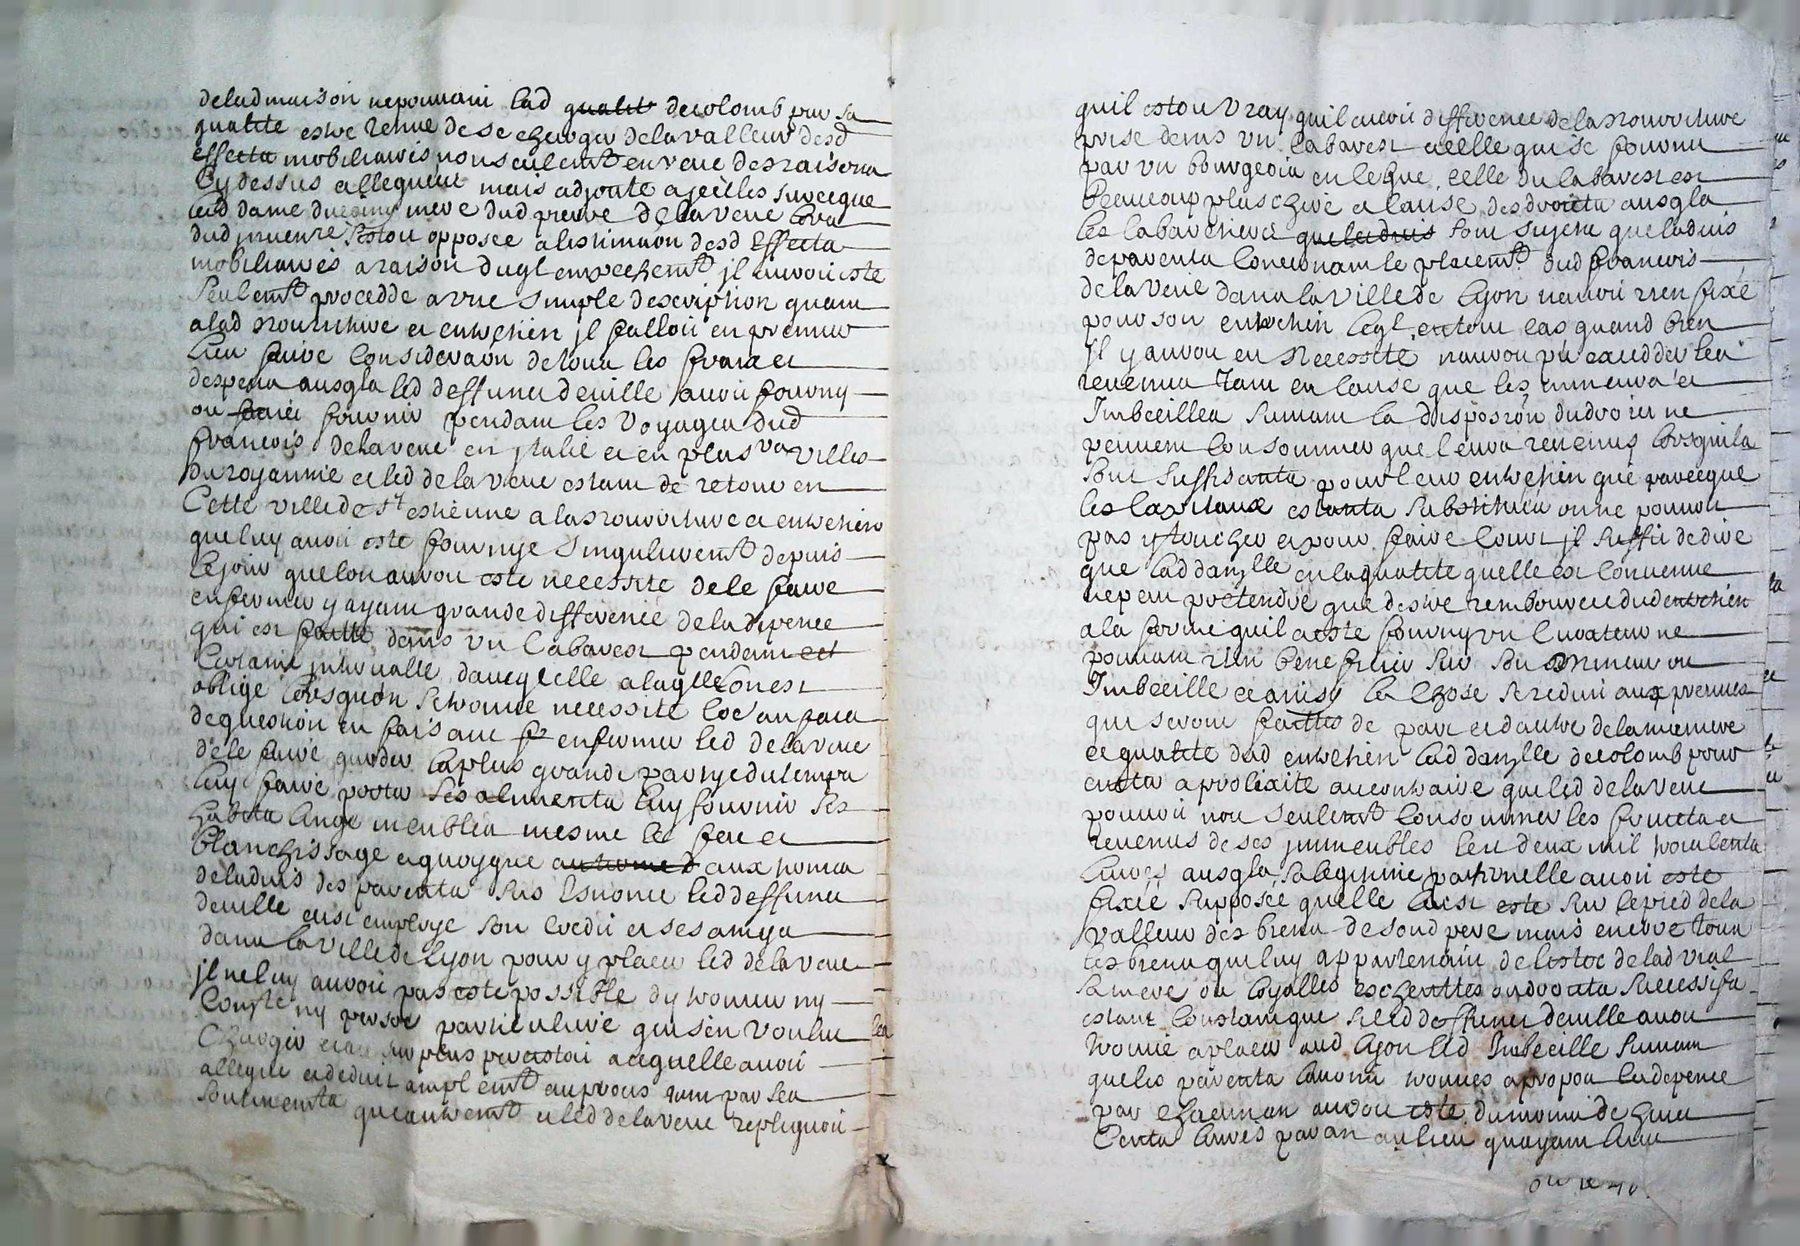 delad maison ne pouvant lad qualité de colomb par sa
qualité estre tenue de se charger de la valleur desd
effects mobiliaires non seulemt en veue des raisons
cy dessus allegueés mais adjouté a jcelles sur ce que
lad dame mere dud pierre de la veue
dud inventre sestoit opposee a lestimaōn desd effects
mobiliaires a raison duql empechemt jl auroit esté
seulemt procedde a vne simple description quant
a lad nourriture et entretien jl falloit en premier
lieu faire consideraōn de tous les fraix et
despens ausqls led deffunct deuille auoit fourny
ou faict fournir pendant les voyages dud
francois de la veue en jtalie et en plusrs villes
du royaume et led de la veue estant de retour en
cette ville de st estienne a la nourriture et entretien
que luy auoit esté fournye singulieremt depuis
le jour que lon auroit esté necessité de le faire
enfermer y ayant grande difference de la depence
qui est faitte dans vn cabaret pendant
certaine interualle dauec celle a laqlle on est
obligé lorsquon se trouue necessité
de question en faisant enfermer led de la veue
de le faire garder la plus grande partye du temps
luy faire porter ses alimentz luy fournir ses
habits linge meubles mesme le feu et
blanchissage et quoyque aux noms
de laduis des parents sus led deffunct
deuille eust employé son credit et ses amys
dans la ville de lyon pour y placer led de la veue
jl ne luy auroit pas esté possible dy trouuer ny
ny persoe particuliere qui sen voulut
charger surplus persistoit a ce quelle auoit
allegué et deduit amplemt au proces tant par ses
soutnements quautremt et led de la veue repliquoit
quil estoit vray quil y auoit difference de la nourriture
prise dans vn cabaret a celle qui se fournit
par vn bourgeois en ce que celle du cabaret est
beaucoup plus chere a cause des droicts ausqls
les cabaretiers que leduis sont sujets que laduis
de parents concernant le placemt dud francois
de la veue dans la ville de lyon nauoit rien fixé
pour son entretien leql en tout cas quand bien
jl y auroit eu necessité nauroit pu exceder les
reuenus tant en cause que les mineurs et
Imbecilles suiuant la disposiōn du droict ne
peuuent consommer que leurs reuenus lorsquils
sont suffisants pour leur entretien que parce que
les capitaux estants substitués on ne pouuoit
pas y toucher et pour faire court jl suffit de dire
que lad damlle en la qualité quelle est conuenue
ne peut pretendre que destre rembourcée dud entretien
a la forme quil a esté fourny vn curateur ne
pouuant rien beneficier sur son mineur ou
Imbecille et ainsy la chose se reduit aux preuues
qui seront faittes de part et dautre de la maniere
et qualité dud entretien lad damlle de colomb pour
euiter a prolixité au contraire que led de la veue
pouuoit non seulemt consommer les fruicts et
reuenus de ses jmmeubles les deux mil
liures ausqls sa legitime paternelle auoit esté
fixée supposée quelle leust esté sur le pied de la
valleur des biens de sond pere mais encore tous
les biens qui luy appartenoint de lestoc de lad vial
sa mere ou loyalles escheuttes ou droicts successifs
estant constant que si led deffunct deuille auoit
trouué a placer aud lyon led Imbecille suiuant
que les parents auoint trouués a propos la depence
par chacun an auroit esté du moins de huict
cents liures par an au lieu quayant